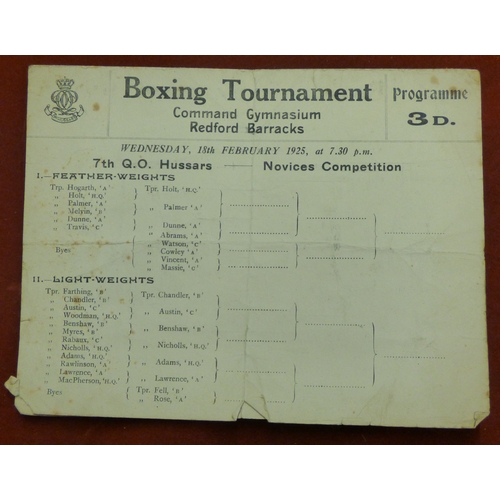 Boxing Tournament
Command Gymnasium
Redford Barracks
Programme
3D.
WEDNESDAY, 18th FEBRUARY 1925, at 7.30 p.m.
7th Q.O. Hussars — Novices Competition
I.—FEATHER-WEIGHTS
Trp. Hogarth, 'A' Tpr. Holt, 'H.Q.'
„ Holt, 'H.Q.'
„ Palmer, 'A' „ Palmer 'A'
„ Melvin, 'B'
„ Dunne, 'A' „ Dunne, 'A'
„ Travis, 'C' „ Abrams, 'A'
Byes „ Watson, 'C'
„ Cowley 'A'
„ Vincent, 'A'
„ Massie, 'C'
II.—LIGHT-WEIGHTS
Tpr. Farthing, 'B' Tpr. Chandler, 'B'
„ Chandler, 'B'
„ Austin, 'C' „ Austin, 'C'
„ Woodman, 'H.Q.'
„ Benshaw, 'B' „ Benshaw, 'B'
„ Myres, 'B'
„ Rabaux, 'C' „ Nicholls, 'H.Q.'
„ Nicholls, 'H.Q.'
„ Adams, 'H.Q.' „ Adams, 'H.Q.'
„ Rawlinson, 'A'
„ Lawrence, 'A' „ Lawrence, 'A'
„ MacPherson, 'H.Q.'
Byes Tpr. Fell, 'B'
„ Rose, 'A'